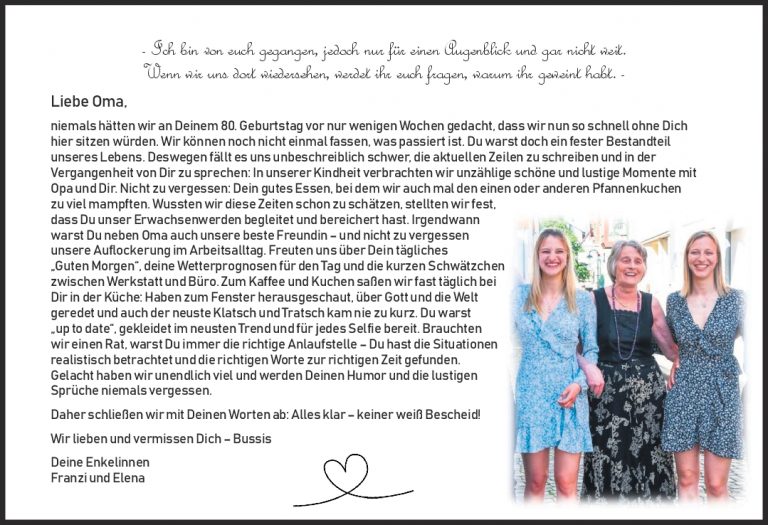 - Ich bin von euch gegangen, jedoch nur für einen Augenblick und gar nicht weit.
Wenn wir uns dort wiedersehen, werdet ihr euch fragen, warum ihr geweint habt. -
Liebe Oma,
niemals hätten wir an Deinem 80. Geburtstag vor nur wenigen Wochen gedacht, dass wir nun so schnell ohne Dich
hier sitzen würden. Wir können noch nicht einmal fassen, was passiert ist. Du warst doch ein fester Bestandteil
unseres Lebens. Deswegen fällt es uns unbeschreiblich schwer, die aktuellen Zeilen zu schreiben und in der
Vergangenheit von Dir zu sprechen: In unserer Kindheit verbrachten wir unzählige schöne und lustige Momente mit
Opa und Dir. Nicht zu vergessen: Dein gutes Essen, bei dem wir auch mal den einen oder anderen Pfannenkuchen
zu viel mampften. Wussten wir diese Zeiten schon zu schätzen, stellten wir fest,
dass Du unser Erwachsenwerden begleitet und bereichert hast. Irgendwann
warst Du neben Oma auch unsere beste Freundin – und nicht zu vergessen
unsere Auflockerung im Arbeitsalltag. Freuten uns über Dein tägliches
„Guten Morgen“, deine Wetterprognosen für den Tag und die kurzen Schwätzchen
zwischen Werkstatt und Büro. Zum Kaffee und Kuchen saßen wir fast täglich bei
Dir in der Küche: Haben zum Fenster herausgeschaut, über Gott und die Welt
geredet und auch der neuste Klatsch und Tratsch kam nie zu kurz. Du warst
„up to date“, gekleidet im neusten Trend und für jedes Selfie bereit. Brauchten
wir einen Rat, warst Du immer die richtige Anlaufstelle – Du hast die Situationen
realistisch betrachtet und die richtigen Worte zur richtigen Zeit gefunden.
Gelacht haben wir unendlich viel und werden Deinen Humor und die lustigen
Sprüche niemals vergessen.
Daher schließen wir mit Deinen Worten ab: Alles klar – keiner weiß Bescheid!
Wir lieben und vermissen Dich – Bussis
Deine Enkelinnen
Franzi und Elena